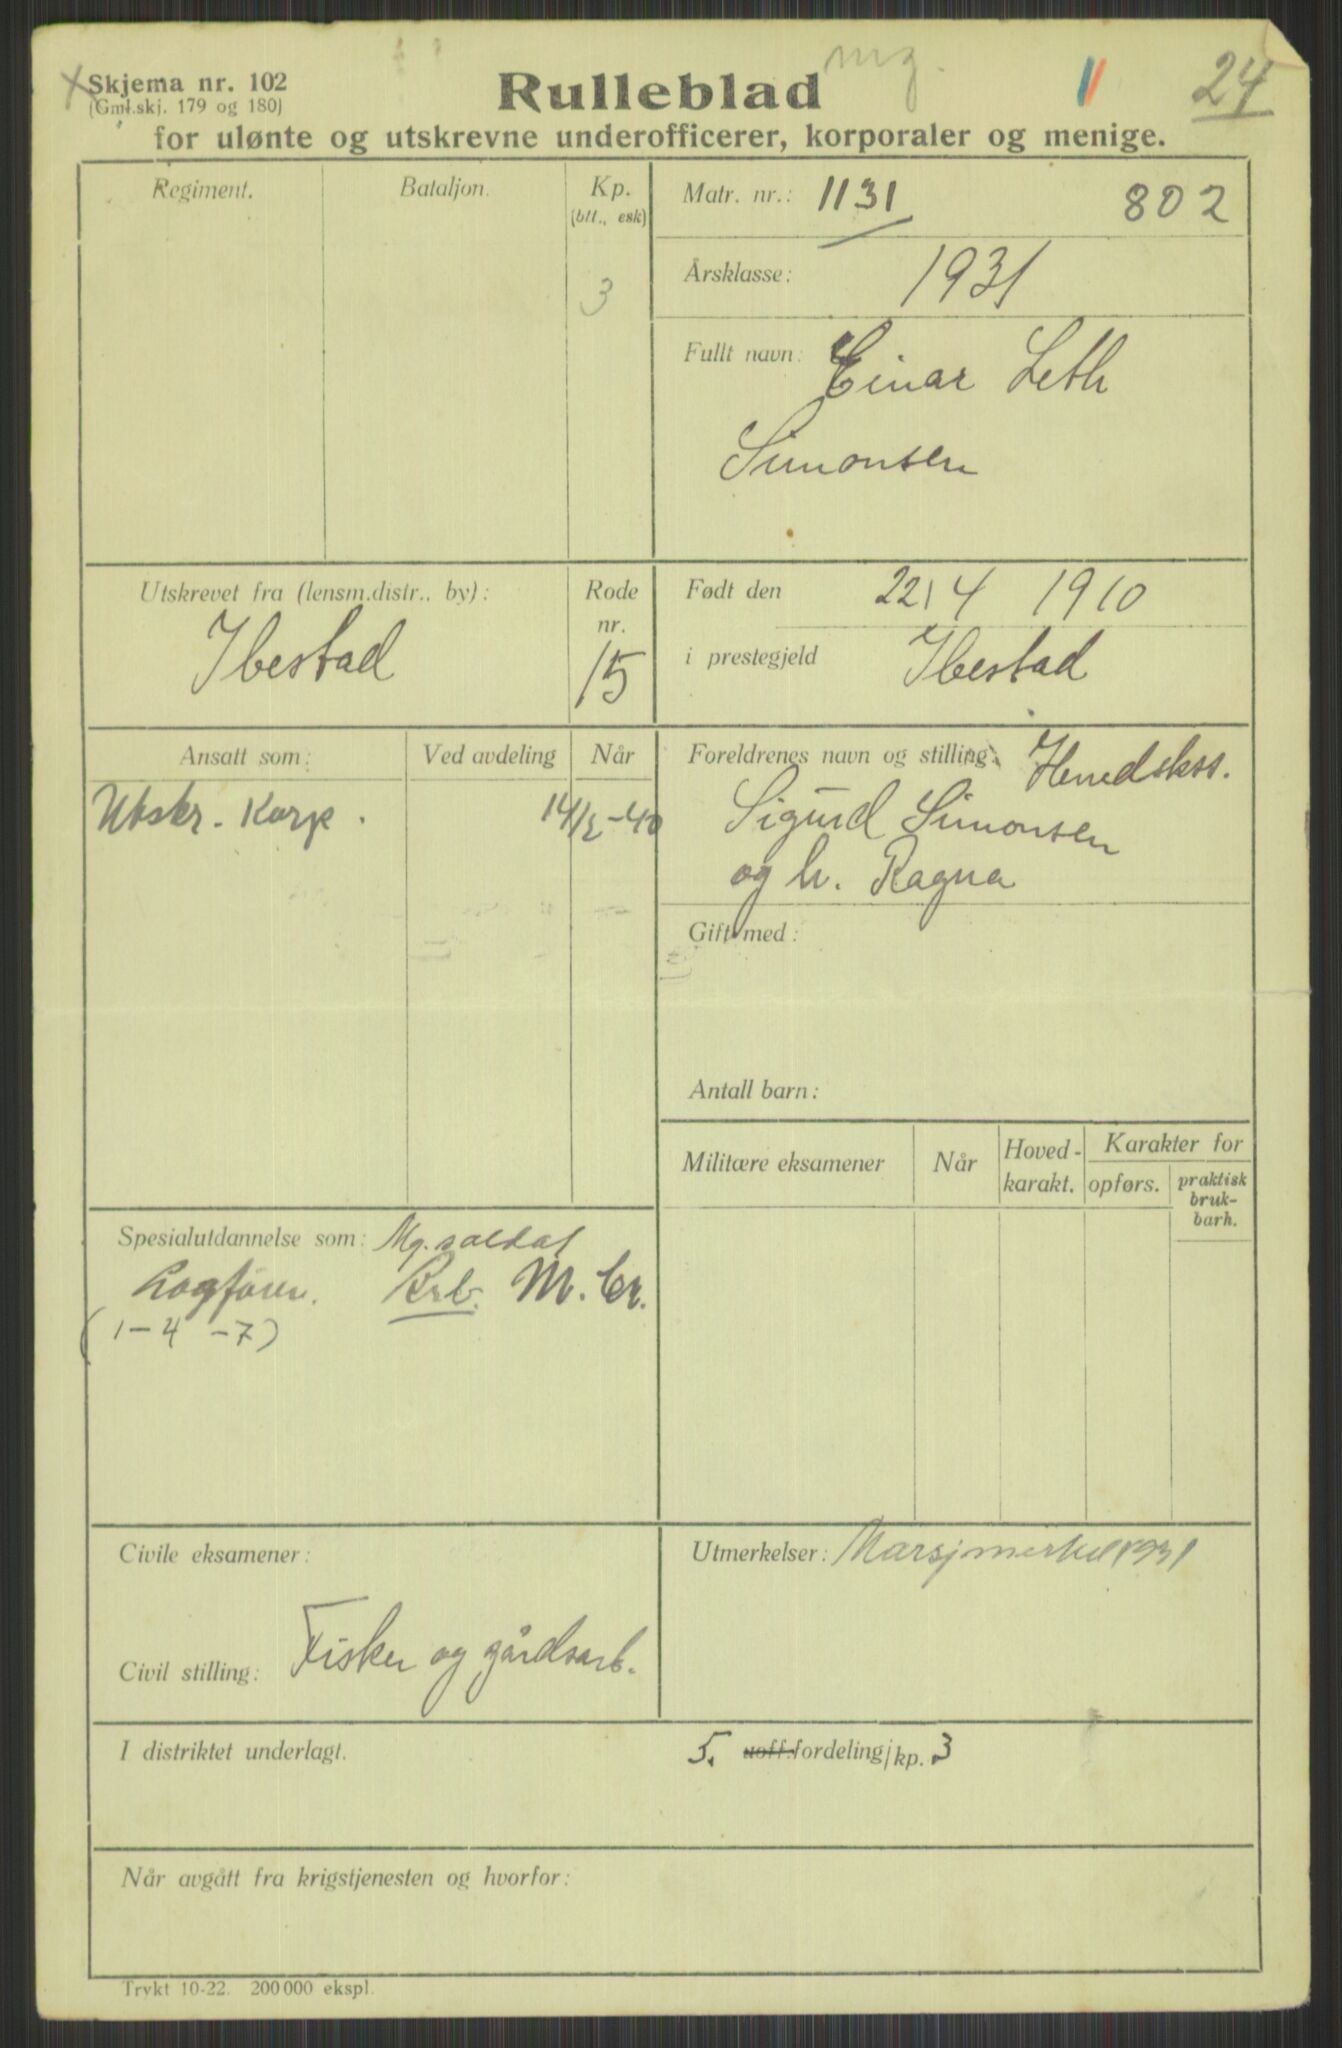 Skjema nr. 102
(Gml.skj. 179 og 180)
Rulleblad
mg.
24
for ulønte og utskrevne underofficerer, korporaler og menige.
Regiment.
Bataljon.
Kp.
(btt., esk)
3
Matr. nr.: 1131
802
Årsklasse: 1931
Fullt navn: Einar Leth
Simonsen
Utskrevet fra (lensm.distr., by):
Ibestad
Rode
nr.
15
Født den 22/4 1910
i prestegjeld Ibestad
Ansatt som:
Ved avdeling
Når
Utskr. Korp.
14/2-40
Foreldrenes navn og stilling: Herredskss.
Sigurd Simonsen
og h. Ragna
Gift med:
Antall barn:
Militære eksamener
Når
Hoved-
karakt.
Karakter for
opførs.
praktisk
bruk-
barh.
Spesialutdannelse som: Mg. soldat
Lagfører. Krb. M. Gr.
(1-4 -7)
Civile eksamener:
Civil stilling: Fisker og gårdsarb.
Utmerkelser: Marsjmerket 1931
I distriktet underlagt.
5. uoff.fordeling/kp. 3
Når avgått fra krigstjenesten og hvorfor:
Trykt 10-22. 200 000 ekspl.